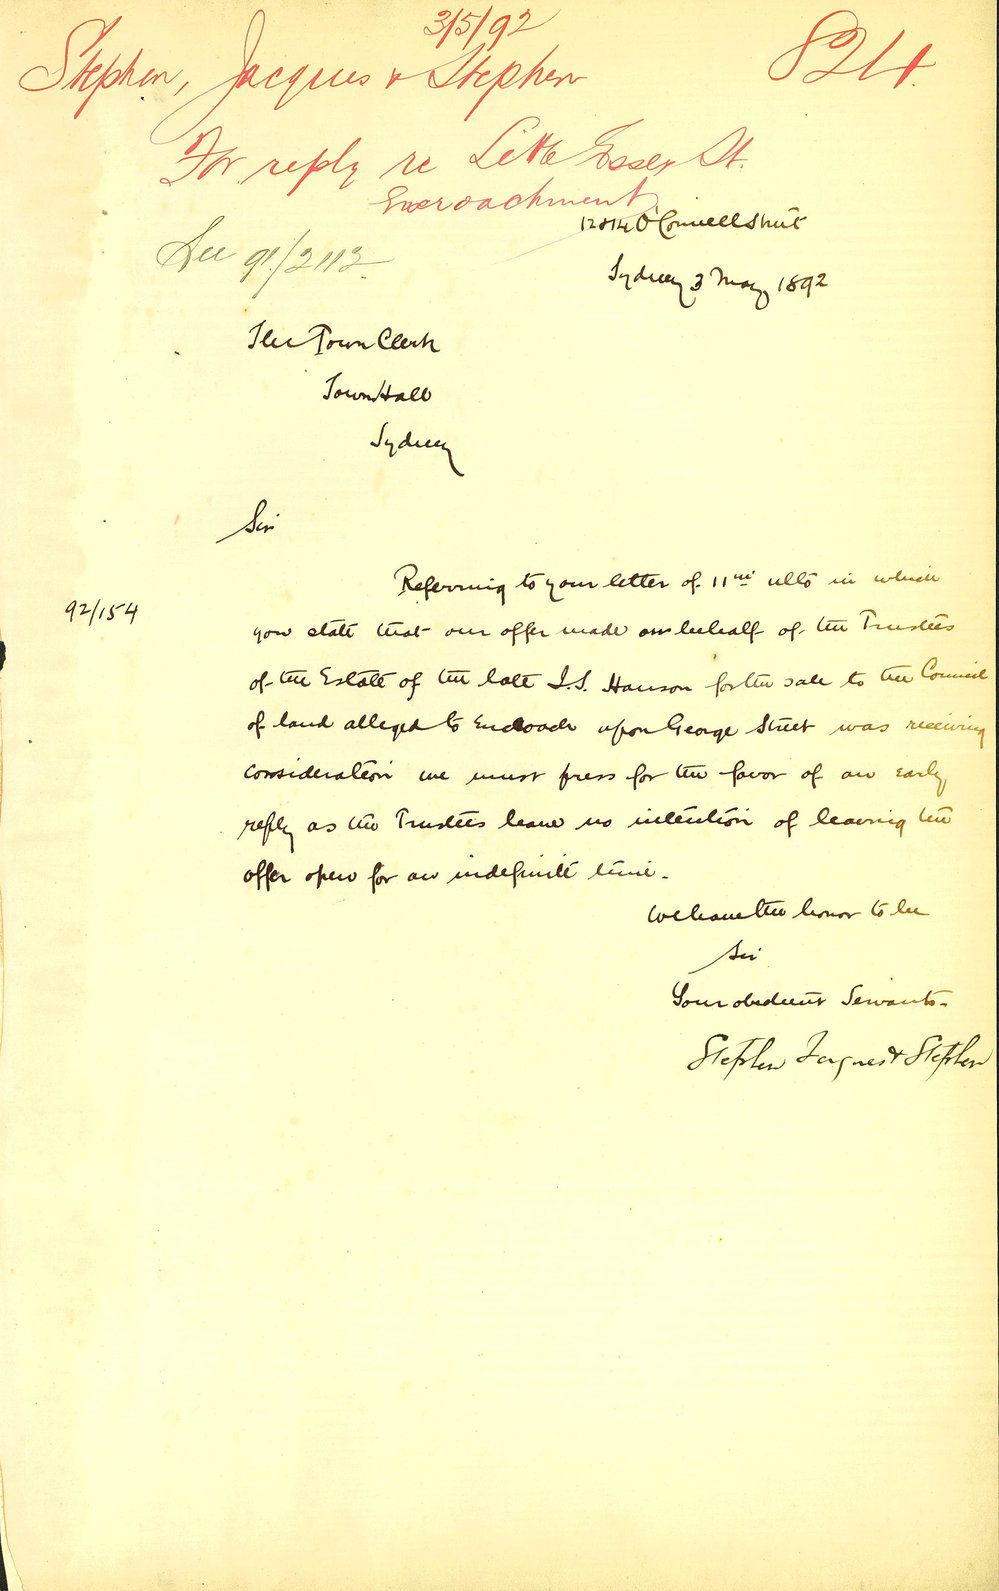 3/5/92
Stephen, Jacques & Stephen
824
For reply re Little Essex St.
Encroachment
12 & 14 O'Connell Street
See 91/2112
Sydney 3 May 1892
The Town Clerk
Town Hall
Sydney
Sir
Referring to your letter of 11th ulto in which
92/154
you state that our offer made on behalf of the Trustees
of the Estate of the late Hanson for the sale to the Council
of land alleged to Encroach upon George Street was receiving
consideration we must press for the favor of an early
reply as the Trustees have no intention of leaving the
offer open for an indefinite time.
We have the honor to be
Sir
Your obedient Servants
Stephen Jaques & Stephen